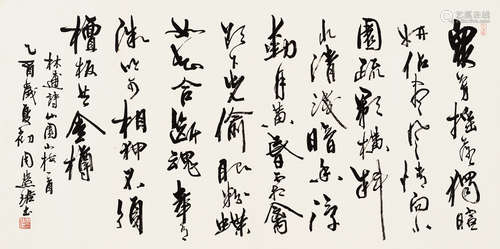 眾芳摇落獨暄
妍占尽风情向小
園疏影横斜
水清浅暗香浮
動月黄昏霜禽
欲下先偷眼粉蝶
如知合斷魂幸有
微吟可相狎不須
檀板共金樽
林逋詩山園小梅一首
乙酉歲夏初周慧珺书